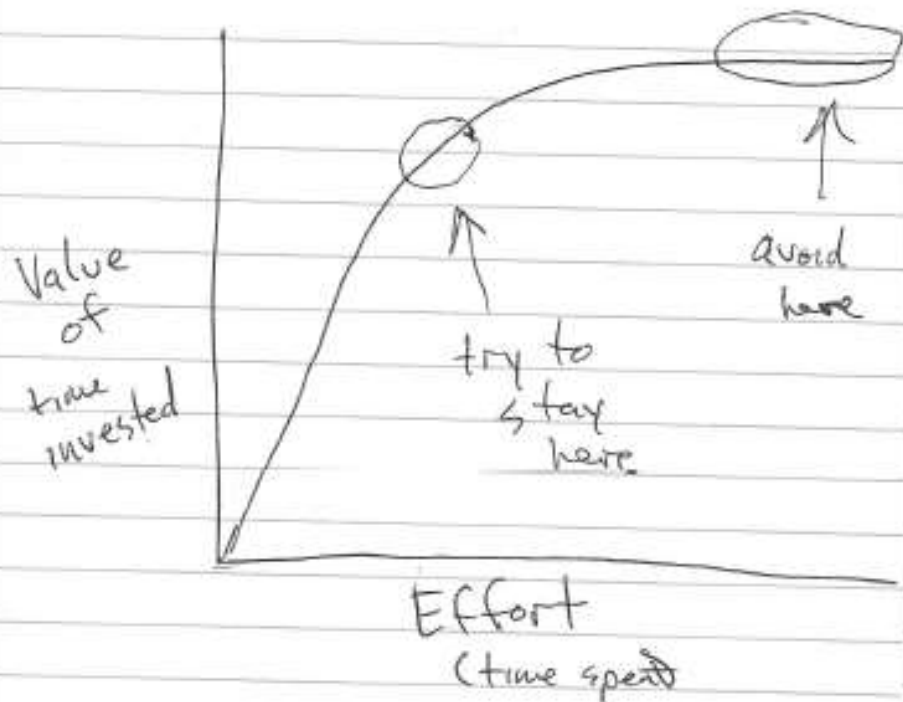 Value
of
time
invested
try to
stay
here
avoid
here
Effort
(time spent